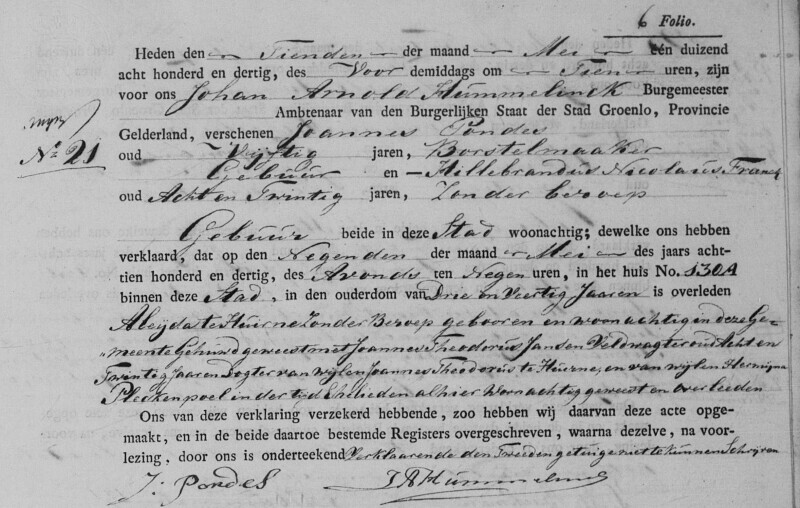 6 Folio.
Heden den Tienden der maand Mei één duizend
acht honderd en dertig, des Voor demiddags om Tien uren, zijn
voor ons Johan Arnold Hummelinck Burgemeester
Ambtenaar van den Burgerlijken Staat der Stad Groenlo, Provincie
Gelderland, verschenen Joannes Pondes
No 21
oud Vijftig jaren, Borstelmaaker
Gebuur en Hillebrandus Nicolaus Franck
oud Acht en Twintig jaren, Zonder beroep
Gebuur beide in deze Stad woonachtig; dewelke ons hebben
verklaard, dat op den Negenden der maand Mei des jaars acht-
tien honderd en dertig, des Avonds ten Negen uren, in het huis No. 130A
binnen deze Stad, in den ouderdom van Drie en Veertig Jaaren is overleden
Aleijda te Huurne Zonder Beroep gebooren en woonachtig in deze Ge-
meente Gehuwd geweest met Joannes Theodorus Jansen Veldwagter oud Acht en
Twintig Jaaren Dogter van wijlen Joannes Theodorus te Huurne, en van wijlen Hermina
in der tijd Ehelieden alhier Woonachtig geweest en overleeden
Ons van deze verklaring verzekerd hebbende, zoo hebben wij daarvan deze acte opge-
maakt, en in de beide daartoe bestemde Registers overgeschreven, waarna dezelve, na voor-
lezing, door ons is onderteekend Verklaarende den Tweeden getuige niet te kunnen Schrijven
J: Pondes JAHummelinck